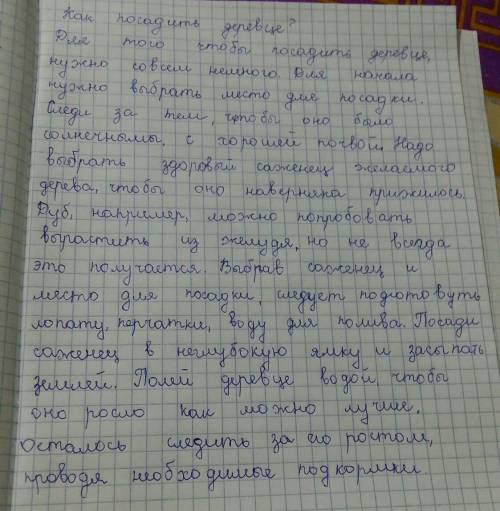 Как посадить деревце?
Для того чтобы посадить деревце,
нужно совсем немного. Для начала
нужно выбрать место для посадки.
Следи за тем, чтобы оно было
солнечным, с хорошей почвой. Надо
выбрать здоровый саженец желаемого
дерева, чтобы оно наверняка прижилось.
Дуб, например, можно попробовать
вырастить из желудя, но не всегда
это получается. Выбрав саженец и
место для посадки, следует подготовуть
лопату, перчатки, воду для полива. Посади
саженец в неглубокую ямку и засыпать
землей. Полей деревце водой, чтобы
оно росло как можно лучше.
Осталось следить за его ростом,
проводя необходимые подкормки.